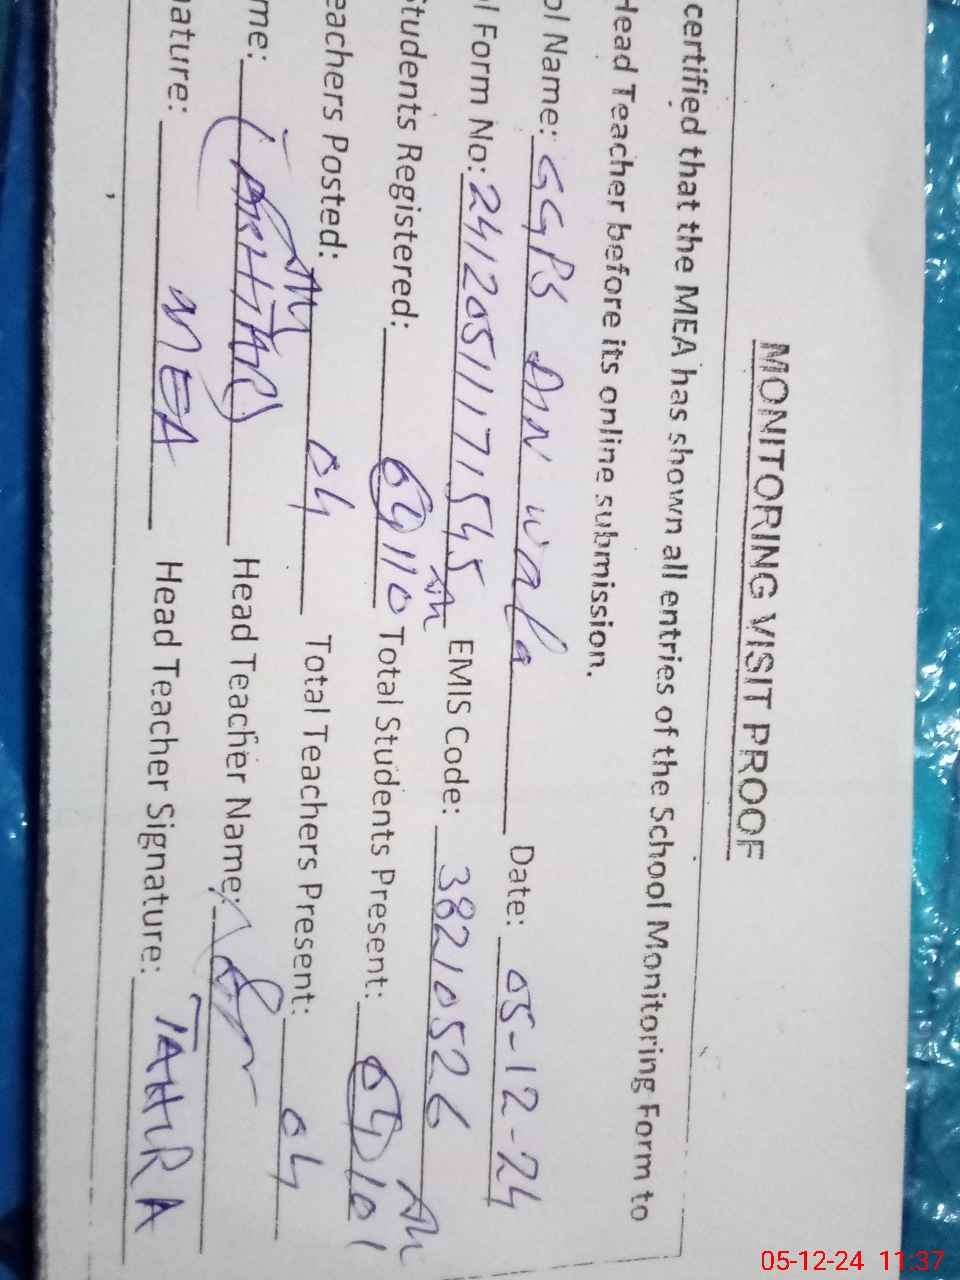 MONITORING VISIT PROOF
certified that the MEA has shown all entries of the School Monitoring Form to
Head Teacher before its online submission.
ol Name: GGPS wala Date: 05-12-24
l Form No: 241205111171545 EMIS Code: 38210526
Students Registered: 04 110 Total Students Present: 04 101
eachers Posted: 04 Total Teachers Present: 04
me: Head Teacher Name:
ature: MEA Head Teacher Signature: TAHIRA
05-12-24 11:37